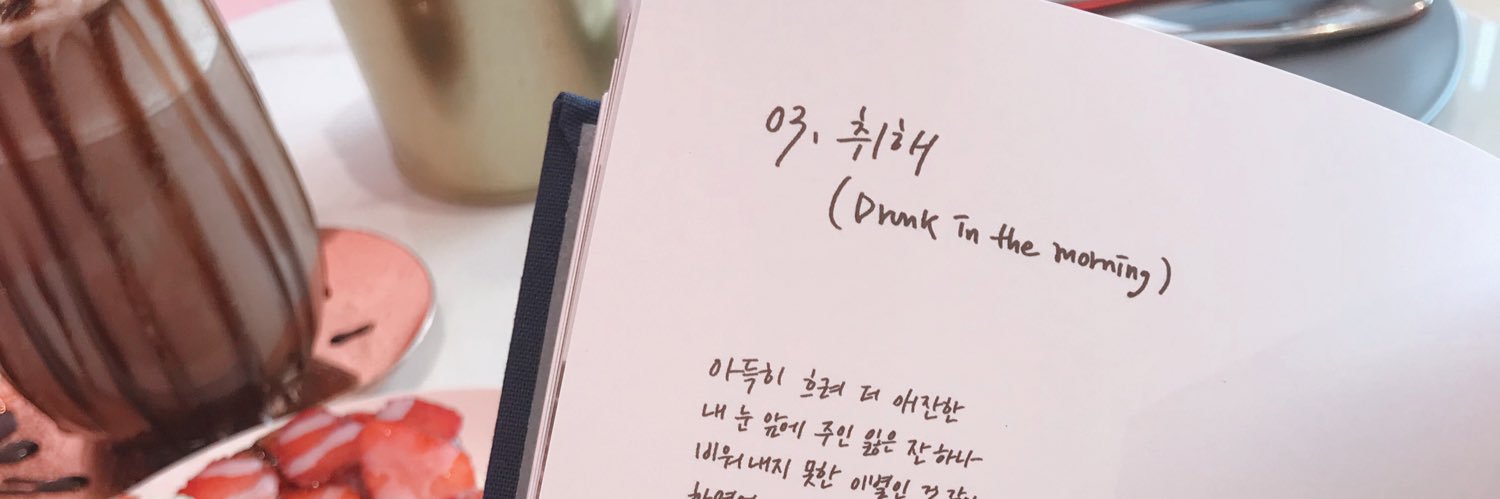 03. 취해
(Drunk in the morning)
아득히 흐려 더 애잔한
내 눈 앞에 주인 잃은 잔 하나
비워내지 못한 이별인 것 같